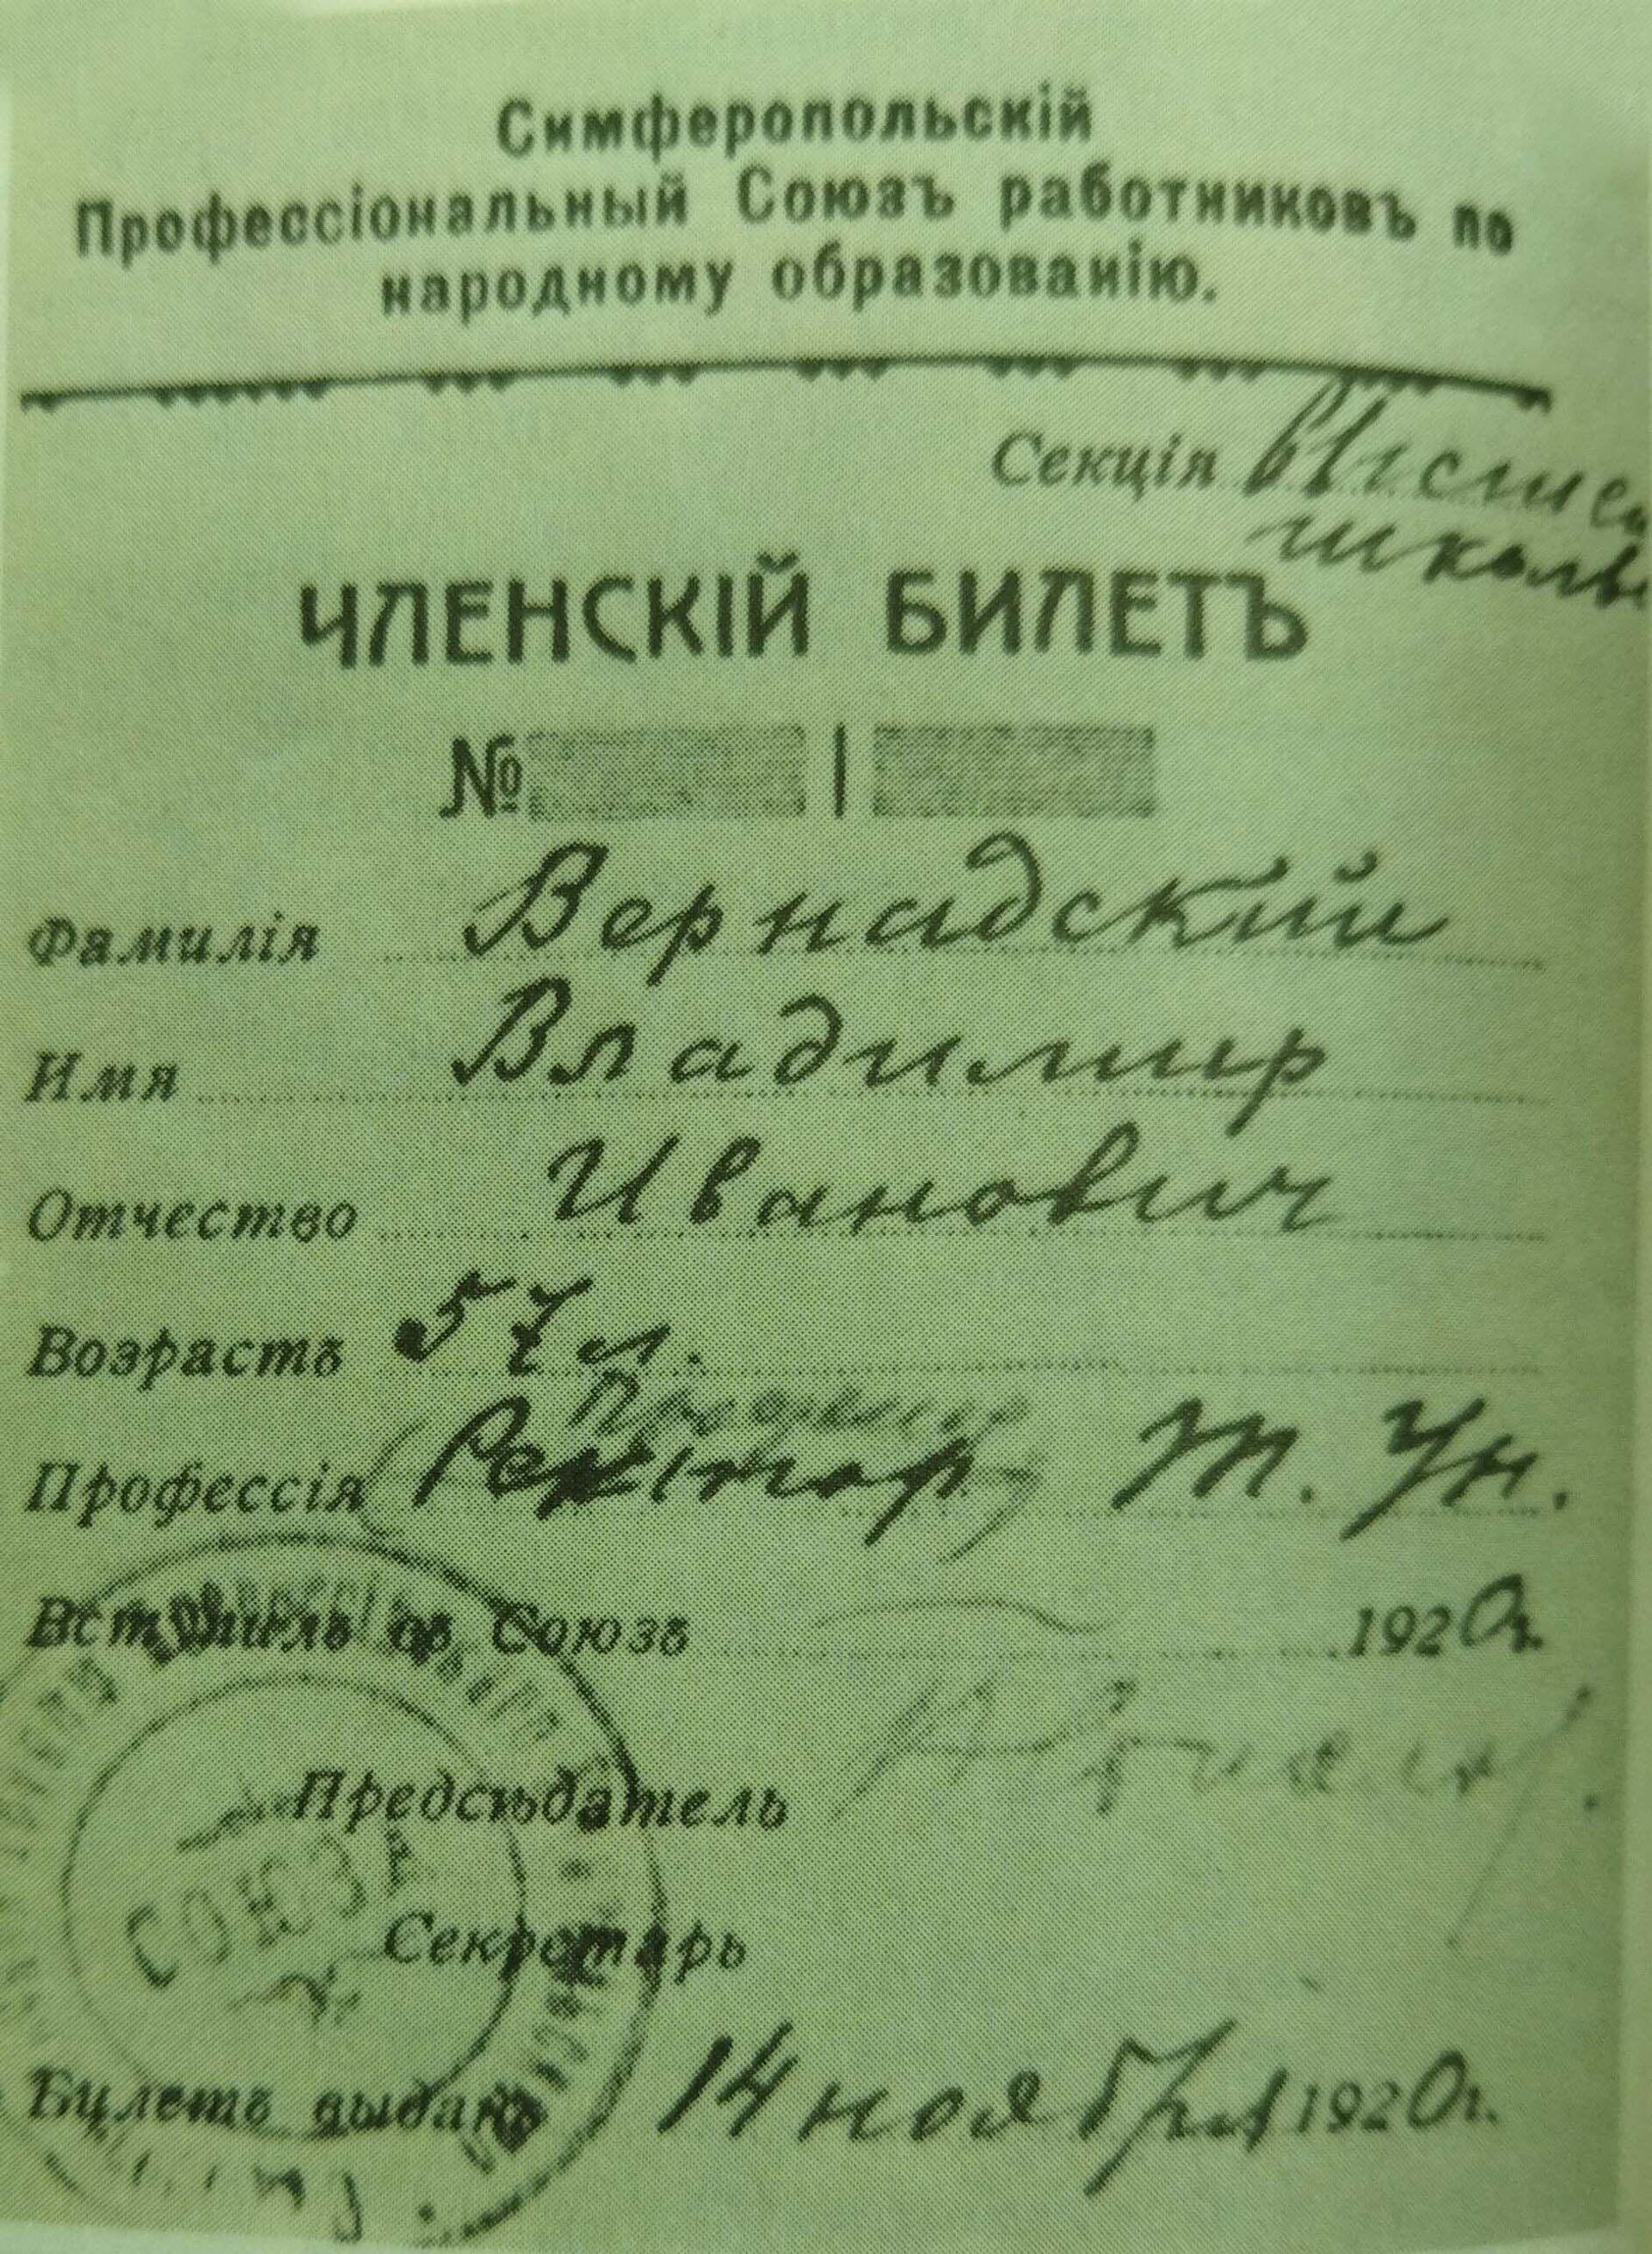 Симферопольскій
Профессіональный Союзъ работниковъ по
народному образованію.
Секція Высшей
школы
ЧЛЕНСКІЙ БИЛЕТЪ
№ |
Фамилія Вернадский
Имя Владимир
Отчество Иванович
Возрастъ 57 л.
Профессія (Ректор) Т. Ун.
Вступилъ въ Союзъ 1920г.
Предсѣдатель
Секретарь
СОЮЗА
Билетъ выданъ 14 ноября 1920г.